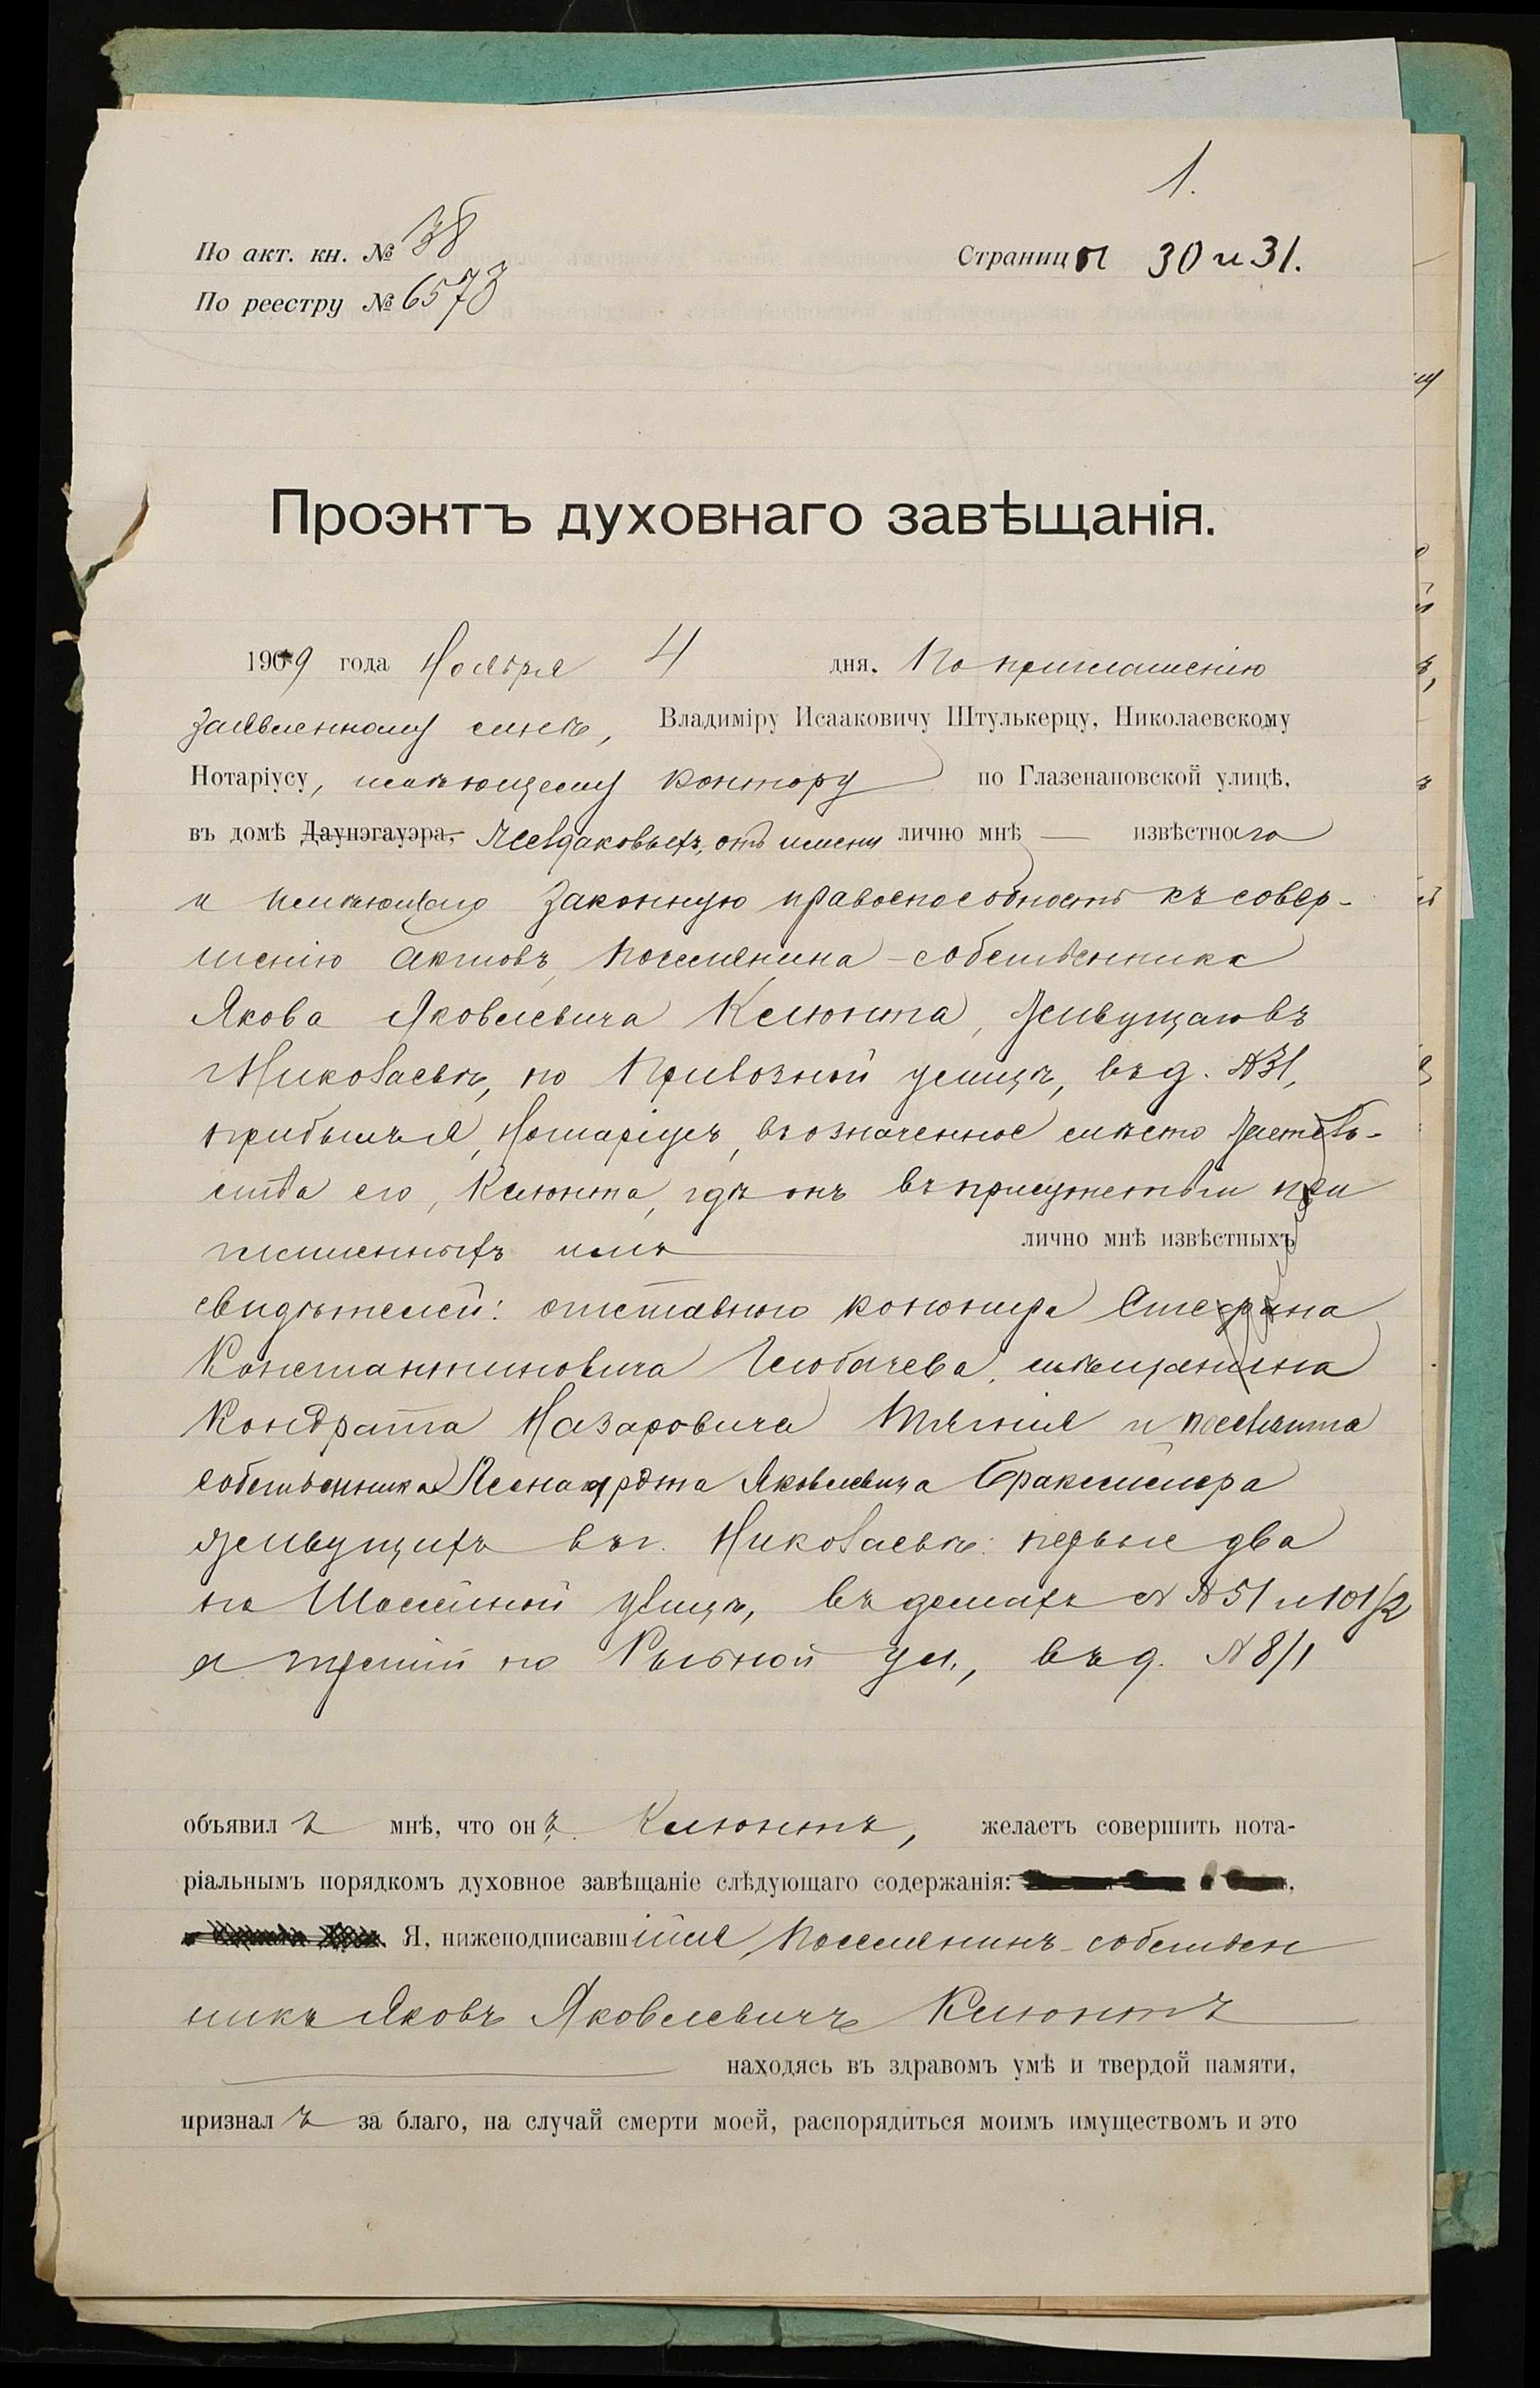 1.
По акт. кн. № 38
Страницы 30 и 31.
По реестру № 6573
Проэктъ духовнаго завѣщанія.
1909 года Ноября 4 дня. По приглашенію
заявленному мнѣ, Владиміру Исааковичу Штулькерцу, Николаевскому
Нотаріусу, имѣющему контору по Глазенаповской улицѣ,
въ домѣ Даунэгауэра, отъ имени лично мнѣ — извѣстнаго
и имѣющаго законную правоспособность къ совер-
шенію актовъ поселянина-собственника
Якова Яковлевича Клюнта, живущаго въ
Николаевѣ, по Привозной улицѣ, въ д. №31,
прибылъ я, Нотаріусъ, въ означенное мѣсто житель-
ства его, Клюнта, гдѣ онъ въ присутствіи при
глашенныхъ имъ лично мнѣ извѣстныхъ
свидѣтелей: отставного Стефана
Константиновича мѣщанина
Кондрата Назаровича и поселянина
собственника Яковлевича
живущихъ въ г. Николаевѣ: первые два
по улицѣ, въ домахъ №№51 и 101/2
а третій по Рыбной ул., въ д. №8/1
объявилъ мнѣ, что онъ Клюнтъ, желаетъ совершить нота-
ріальнымъ порядкомъ духовное завѣщаніе слѣдующаго содержанія:
Я, нижеподписавшійся поселянинъ-собствен
никъ Яковъ Яковлевичъ Клюнтъ
находясь въ здравомъ умѣ и твердой памяти,
призналъ за благо, на случай смерти моей, распорядиться моимъ имуществомъ и это